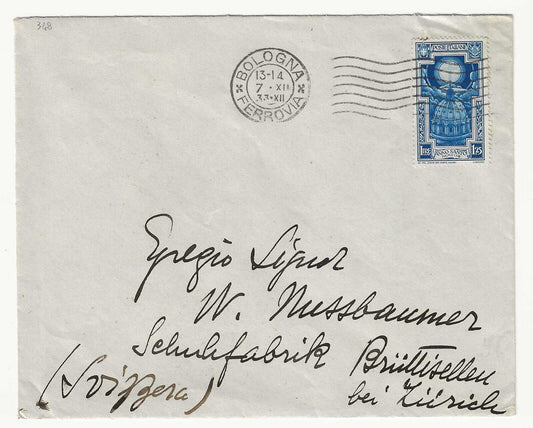 368
BOLOGNA
13-14
7 · XII
33·XII
FERROVIA
POSTE ITALIANE
LIRE 1,75
Egregio Signor
W. Nussbaumer
Schuhfabrik Brüttisellen
(Svizzera) bei Zürich